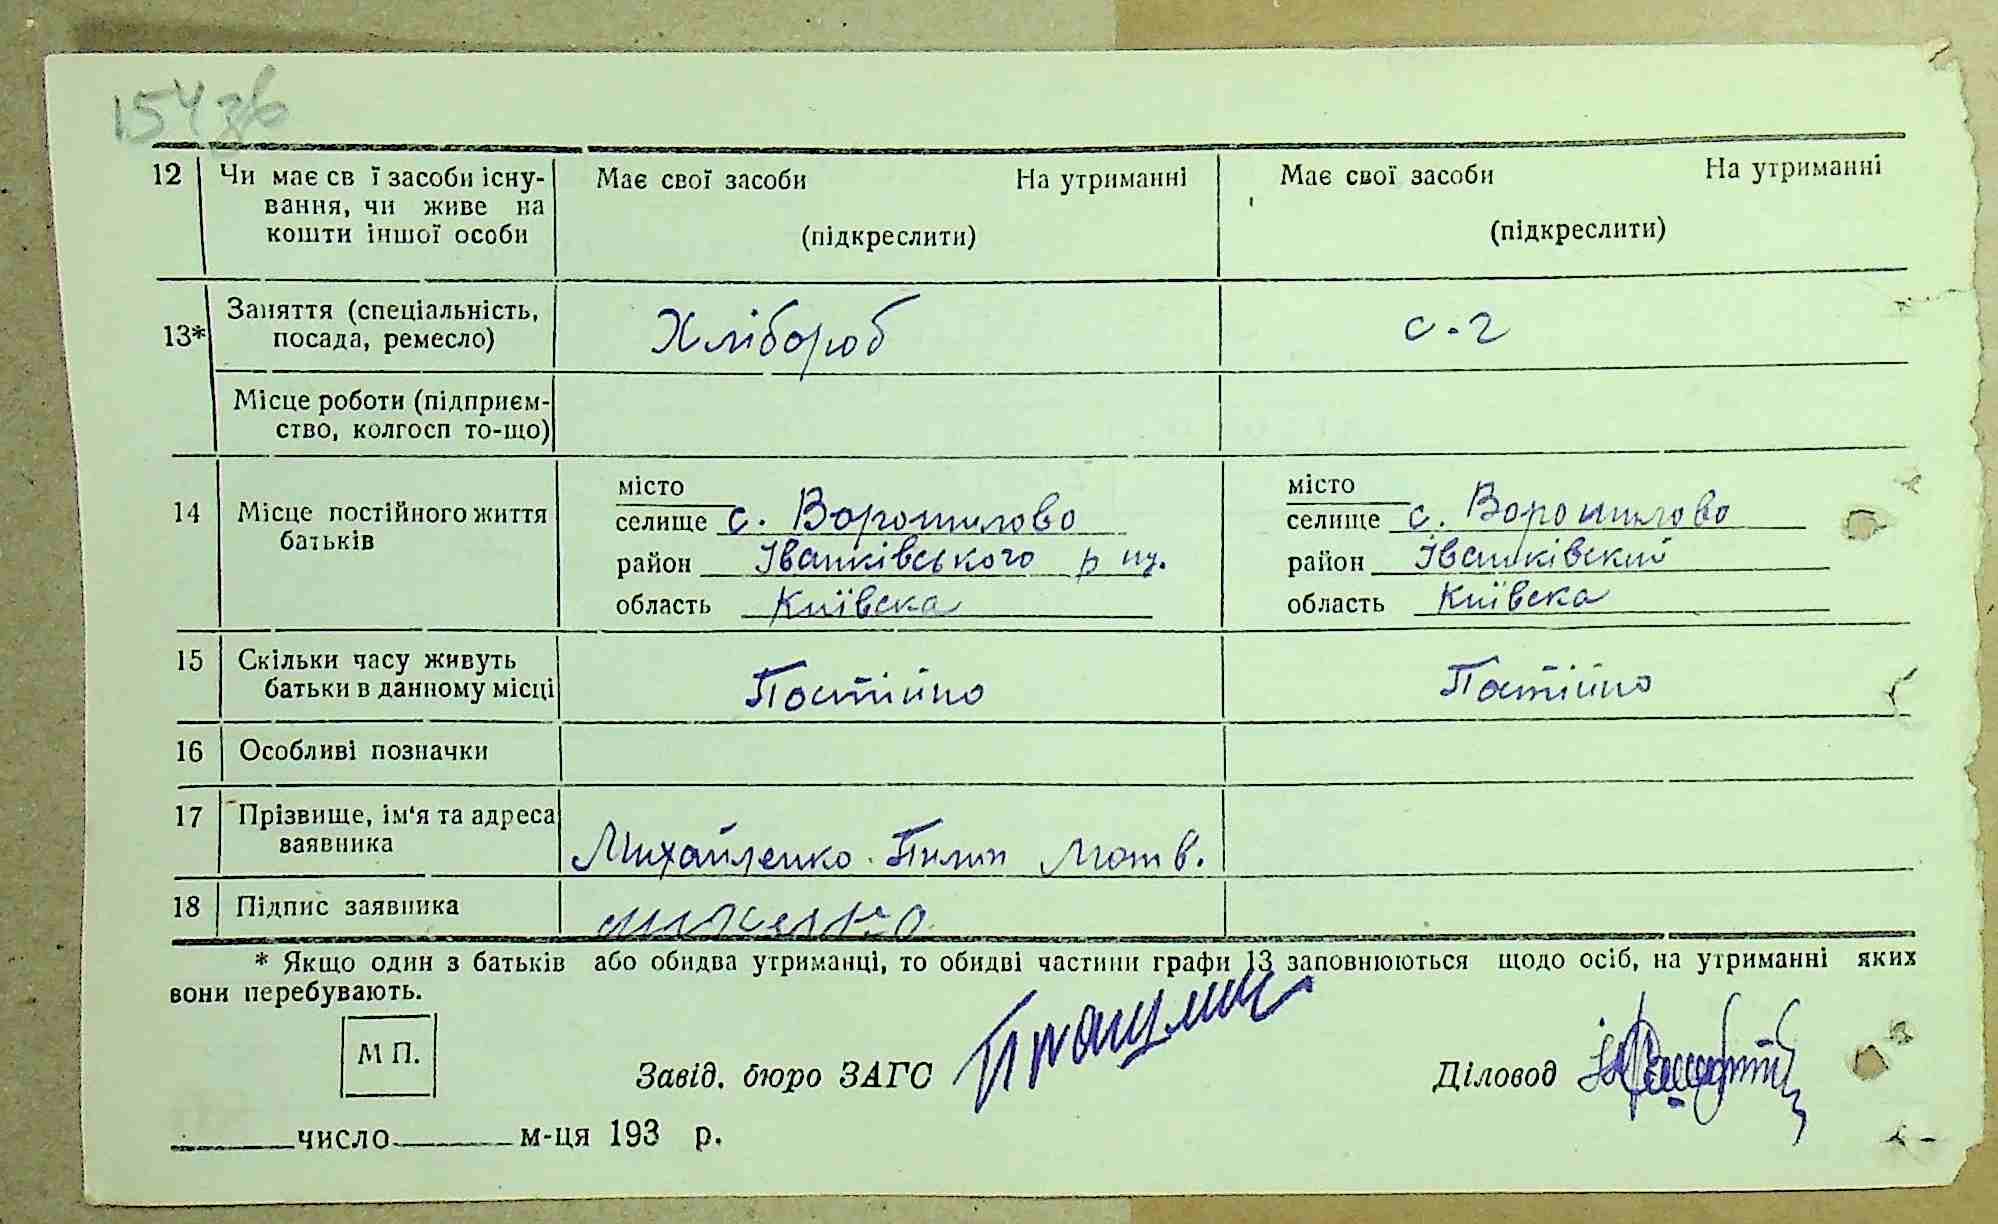 154 зв
12 Чи має св ї засоби існу- Має свої засоби На утриманні Має свої засоби На утриманні
вання, чи живе на
кошти іншої особи (підкреслити) (підкреслити)
13* Заняття (спеціальність, Хлібороб с-г
посада, ремесло)
Місце роботи (підприєм-
ство, колгосп то-що)
місто місто
14 Місце постійного життя селище с. Ворошилово селище с. Ворошилово
батьків район Іванківського р район Іванківский
область Київска область Київска
15 Скільки часу живуть Постійно Постійно
батьки в данному місці
16 Особливі позначки
17 Прізвище, ім'я та адреса
заявника Михайленко Пилип Мотв.
18 Підпис заявника
* Якщо один з батьків або обидва утриманці, то обидві частини графи 13 заповнюються щодо осіб, на утриманні яких
вони перебувають.
М П.
Завід. бюро ЗАГС Діловод
число м-ця 193 р.